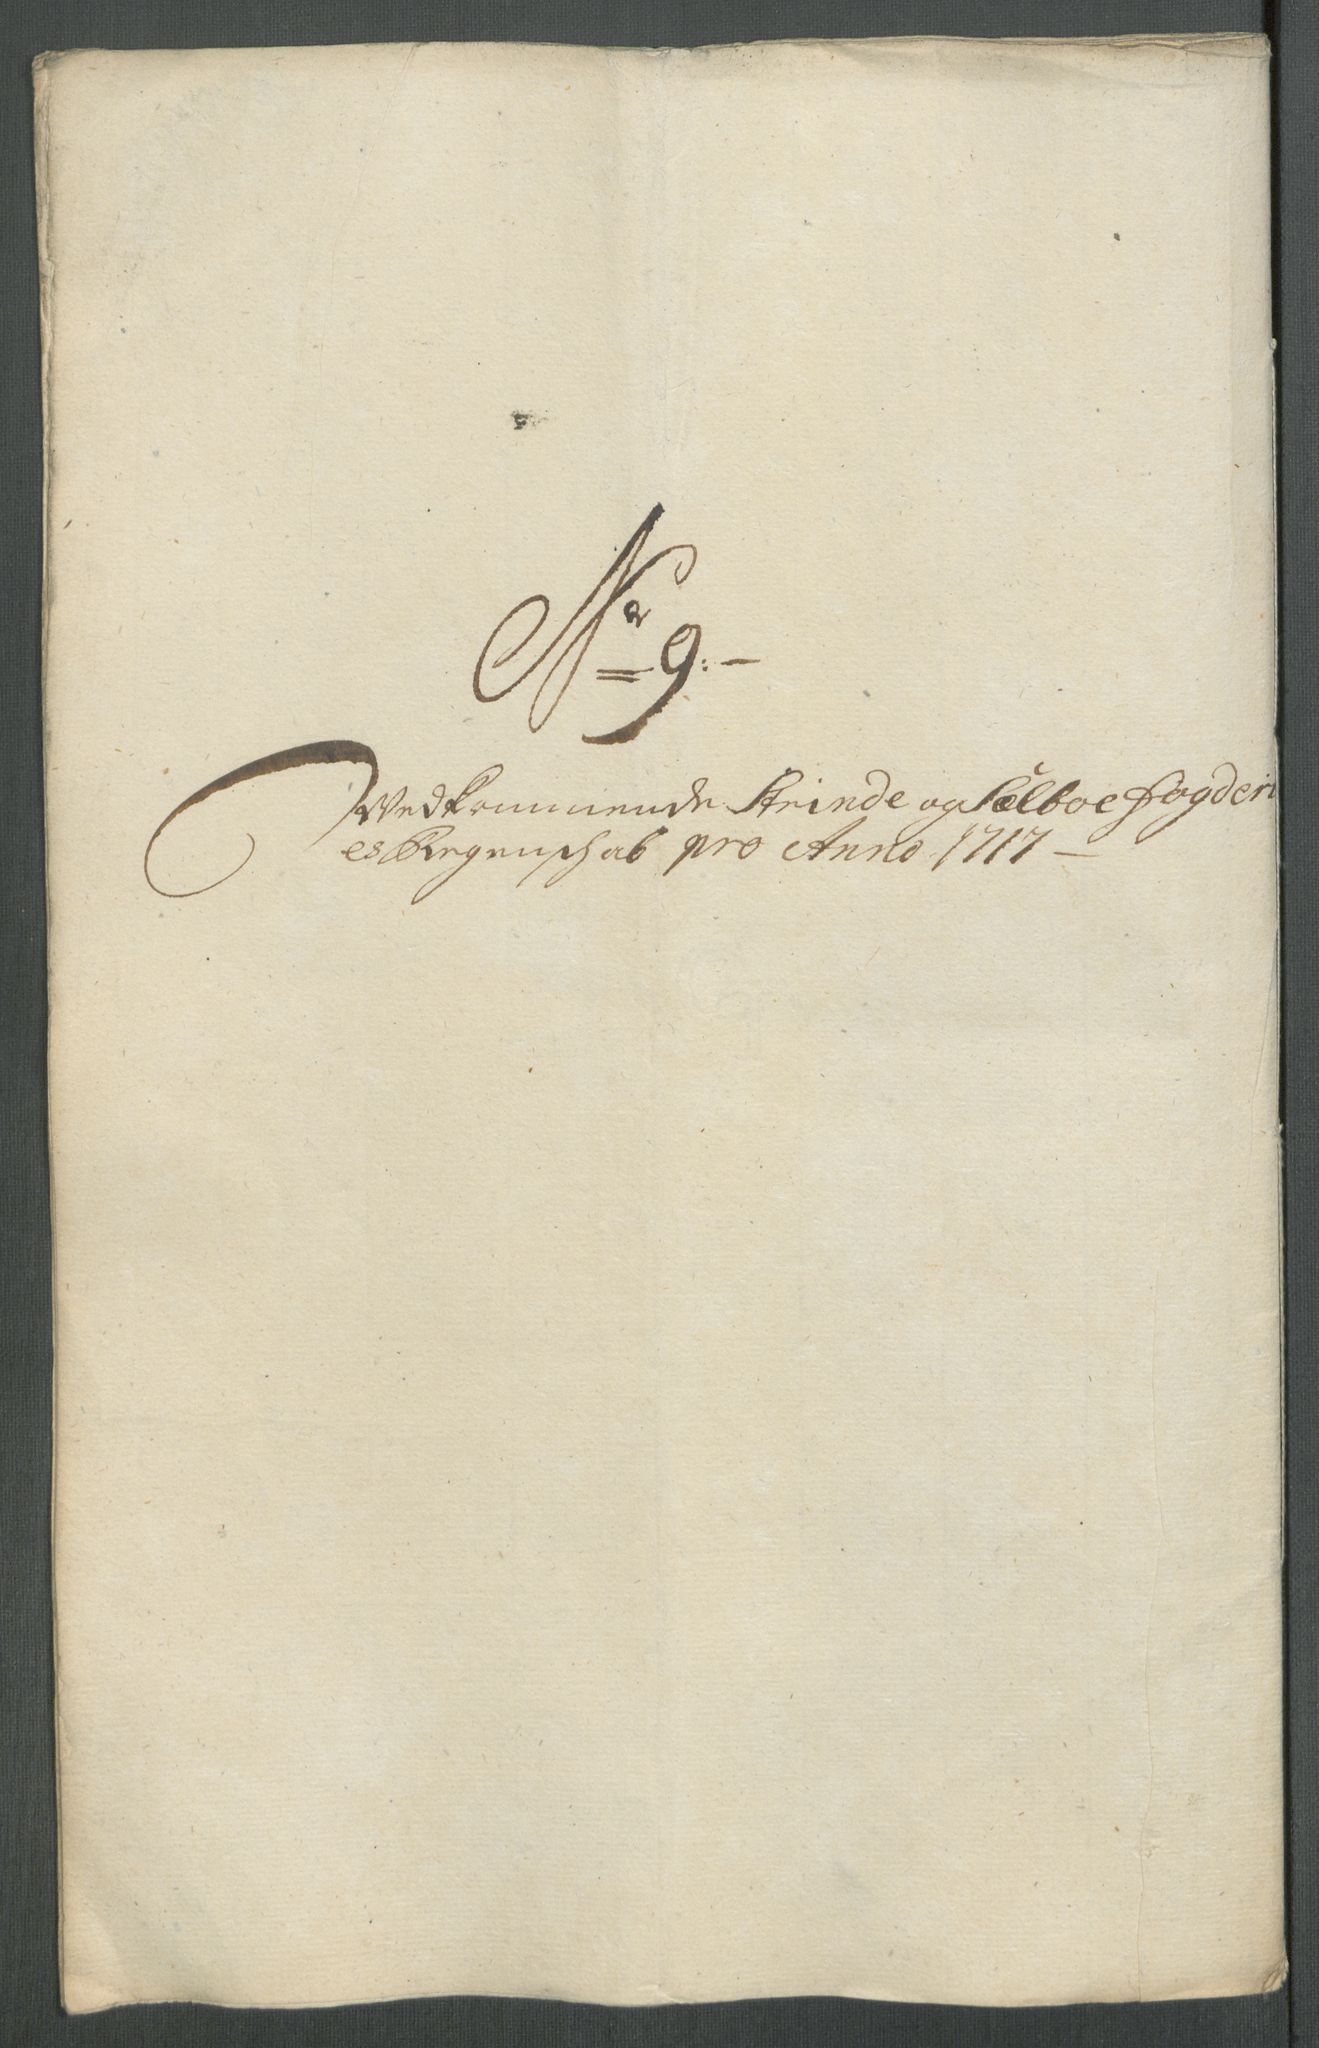 No 9:-
Vedkommende Strinde og Sælboe fogderi
es Regenschab pro Anno 1717 -